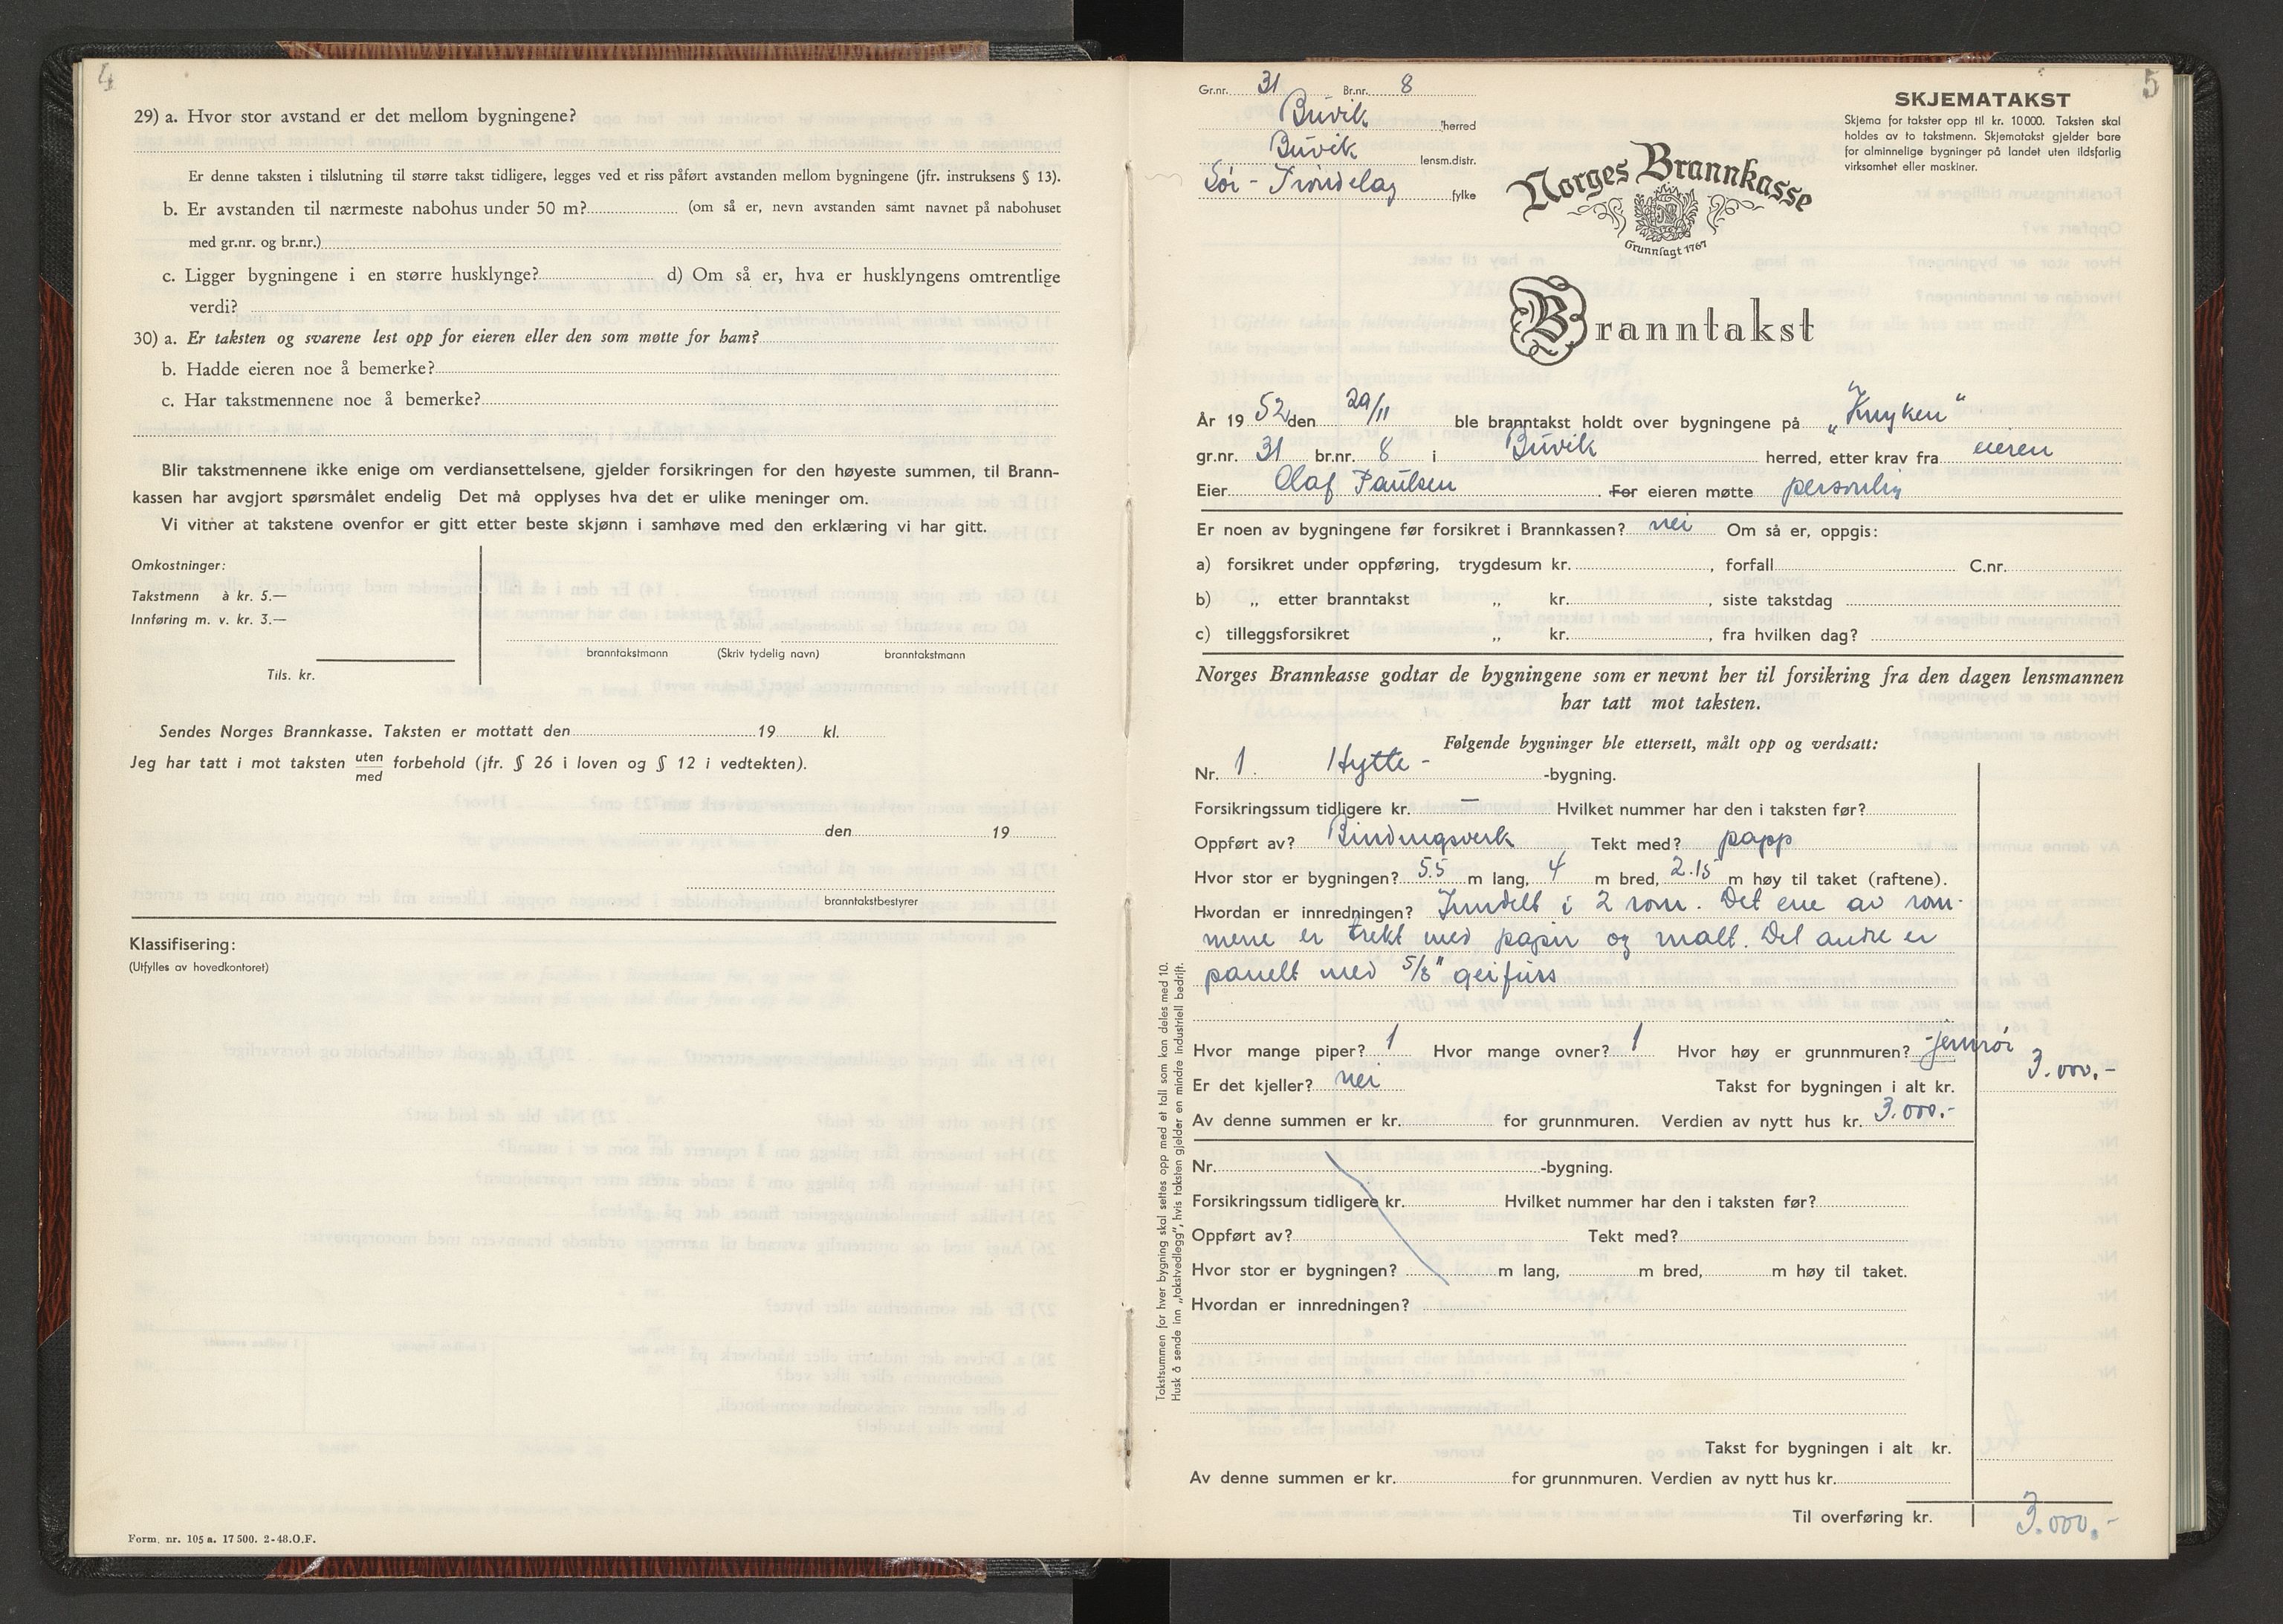 4
29) a. Hvor stor avstand er det mellom bygningene?
Er denne taksten i tilslutning til større takst tidligere, legges ved et riss påført avstanden mellom bygningene (jfr. instruksens § 13).
b. Er avstanden til nærmeste nabohus under 50 m? (om så er, nevn avstanden samt navnet på nabohuset
med gr.nr. og br.nr.)
c. Ligger bygningene i en større husklynge? d) Om så er, hva er husklyngens omtrentlige
verdi?
30) a. Er taksten og svarene lest opp for eieren eller den som møtte for ham?
b. Hadde eieren noe å bemerke?
c. Har takstmennene noe å bemerke?
Blir takstmennene ikke enige om verdiansettelsene, gjelder forsikringen for den høyeste summen, til Brann-
kassen har avgjort spørsmålet endelig Det må opplyses hva det er ulike meninger om.
Vi vitner at takstene ovenfor er gitt etter beste skjønn i samhøve med den erklæring vi har gitt.
Omkostninger:
Takstmenn à kr. 5.—
Innføring m. v. kr. 3.—
branntakstmann (Skriv tydelig navn) branntakstmann
Tils. kr.
Sendes Norges Brannkasse. Taksten er mottatt den 19 kl.
Jeg har tatt i mot taksten uten med forbehold (jfr. § 26 i loven og § 12 i vedtekten).
den 19
branntakstbestyrer
Klassifisering:
(Utfylles av hovedkontoret)
Form. nr. 105 a. 17 500. 2-48. O.F.
5
Gr.nr. 31 Br.nr. 8
Buvik herred
Buvik lensm.distr.
Sør-Trøndelag fylke
SKJEMATAKST
Skjema for takster opp til kr. 10 000. Taksten skal
holdes av to takstmenn. Skjematakst gjelder bare
for alminnelige bygninger på landet uten ildsfarlig
virksomhet eller maskiner.
Norges Brannkasse
Grunnlagt 1767
Branntakst
År 19 52 den 29/11 ble branntakst holdt over bygningene på „Knyken“
gr.nr. 31 br.nr. 8 i Buvik herred, etter krav fra eieren
Eier Olaf Paulsen . For eieren møtte personlig
Er noen av bygningene før forsikret i Brannkassen? nei Om så er, oppgis:
a) forsikret under oppføring, trygdesum kr. , forfall C.nr.
b) „ etter branntakst „ kr. , siste takstdag
c) tilleggsforsikret „ kr. , fra hvilken dag?
Norges Brannkasse godtar de bygningene som er nevnt her til forsikring fra den dagen lensmannen
har tatt mot taksten.
Følgende bygninger ble ettersett, målt opp og verdsatt:
Nr. 1. Hytte- -bygning.
Forsikringssum tidligere kr. — Hvilket nummer har den i taksten før?
Oppført av? Bindingsverk Tekt med? papp
Hvor stor er bygningen? 5.5 m lang, 4 m bred, 2.15 m høy til taket (raftene).
Hvordan er innredningen? Inndelt i 2 rom. Det ene av rom-
mene er trekt med papir og malt. Det andre er
panelt med 5/8" geifuss
Hvor mange piper? 1 Hvor mange ovner? 1 Hvor høy er grunnmuren? jernrør
Er det kjeller? nei Takst for bygningen i alt kr. 3.000.-
Av denne summen er kr. for grunnmuren. Verdien av nytt hus kr. 3.000.-
Nr. -bygning.
Forsikringssum tidligere kr. Hvilket nummer har den i taksten før?
Oppført av? Tekt med?
Hvor stor er bygningen? m lang, m bred, m høy til taket.
Hvordan er innredningen?
Takst for bygningen i alt kr.
Av denne summen er kr. for grunnmuren. Verdien av nytt hus kr.
Til overføring kr. 3.000.-
Takstsummen for hver bygning skal settes opp med et tall som kan deles med 10.
Husk å sende inn „takstvedlegg“, hvis taksten gjelder en mindre industriell bedrift.